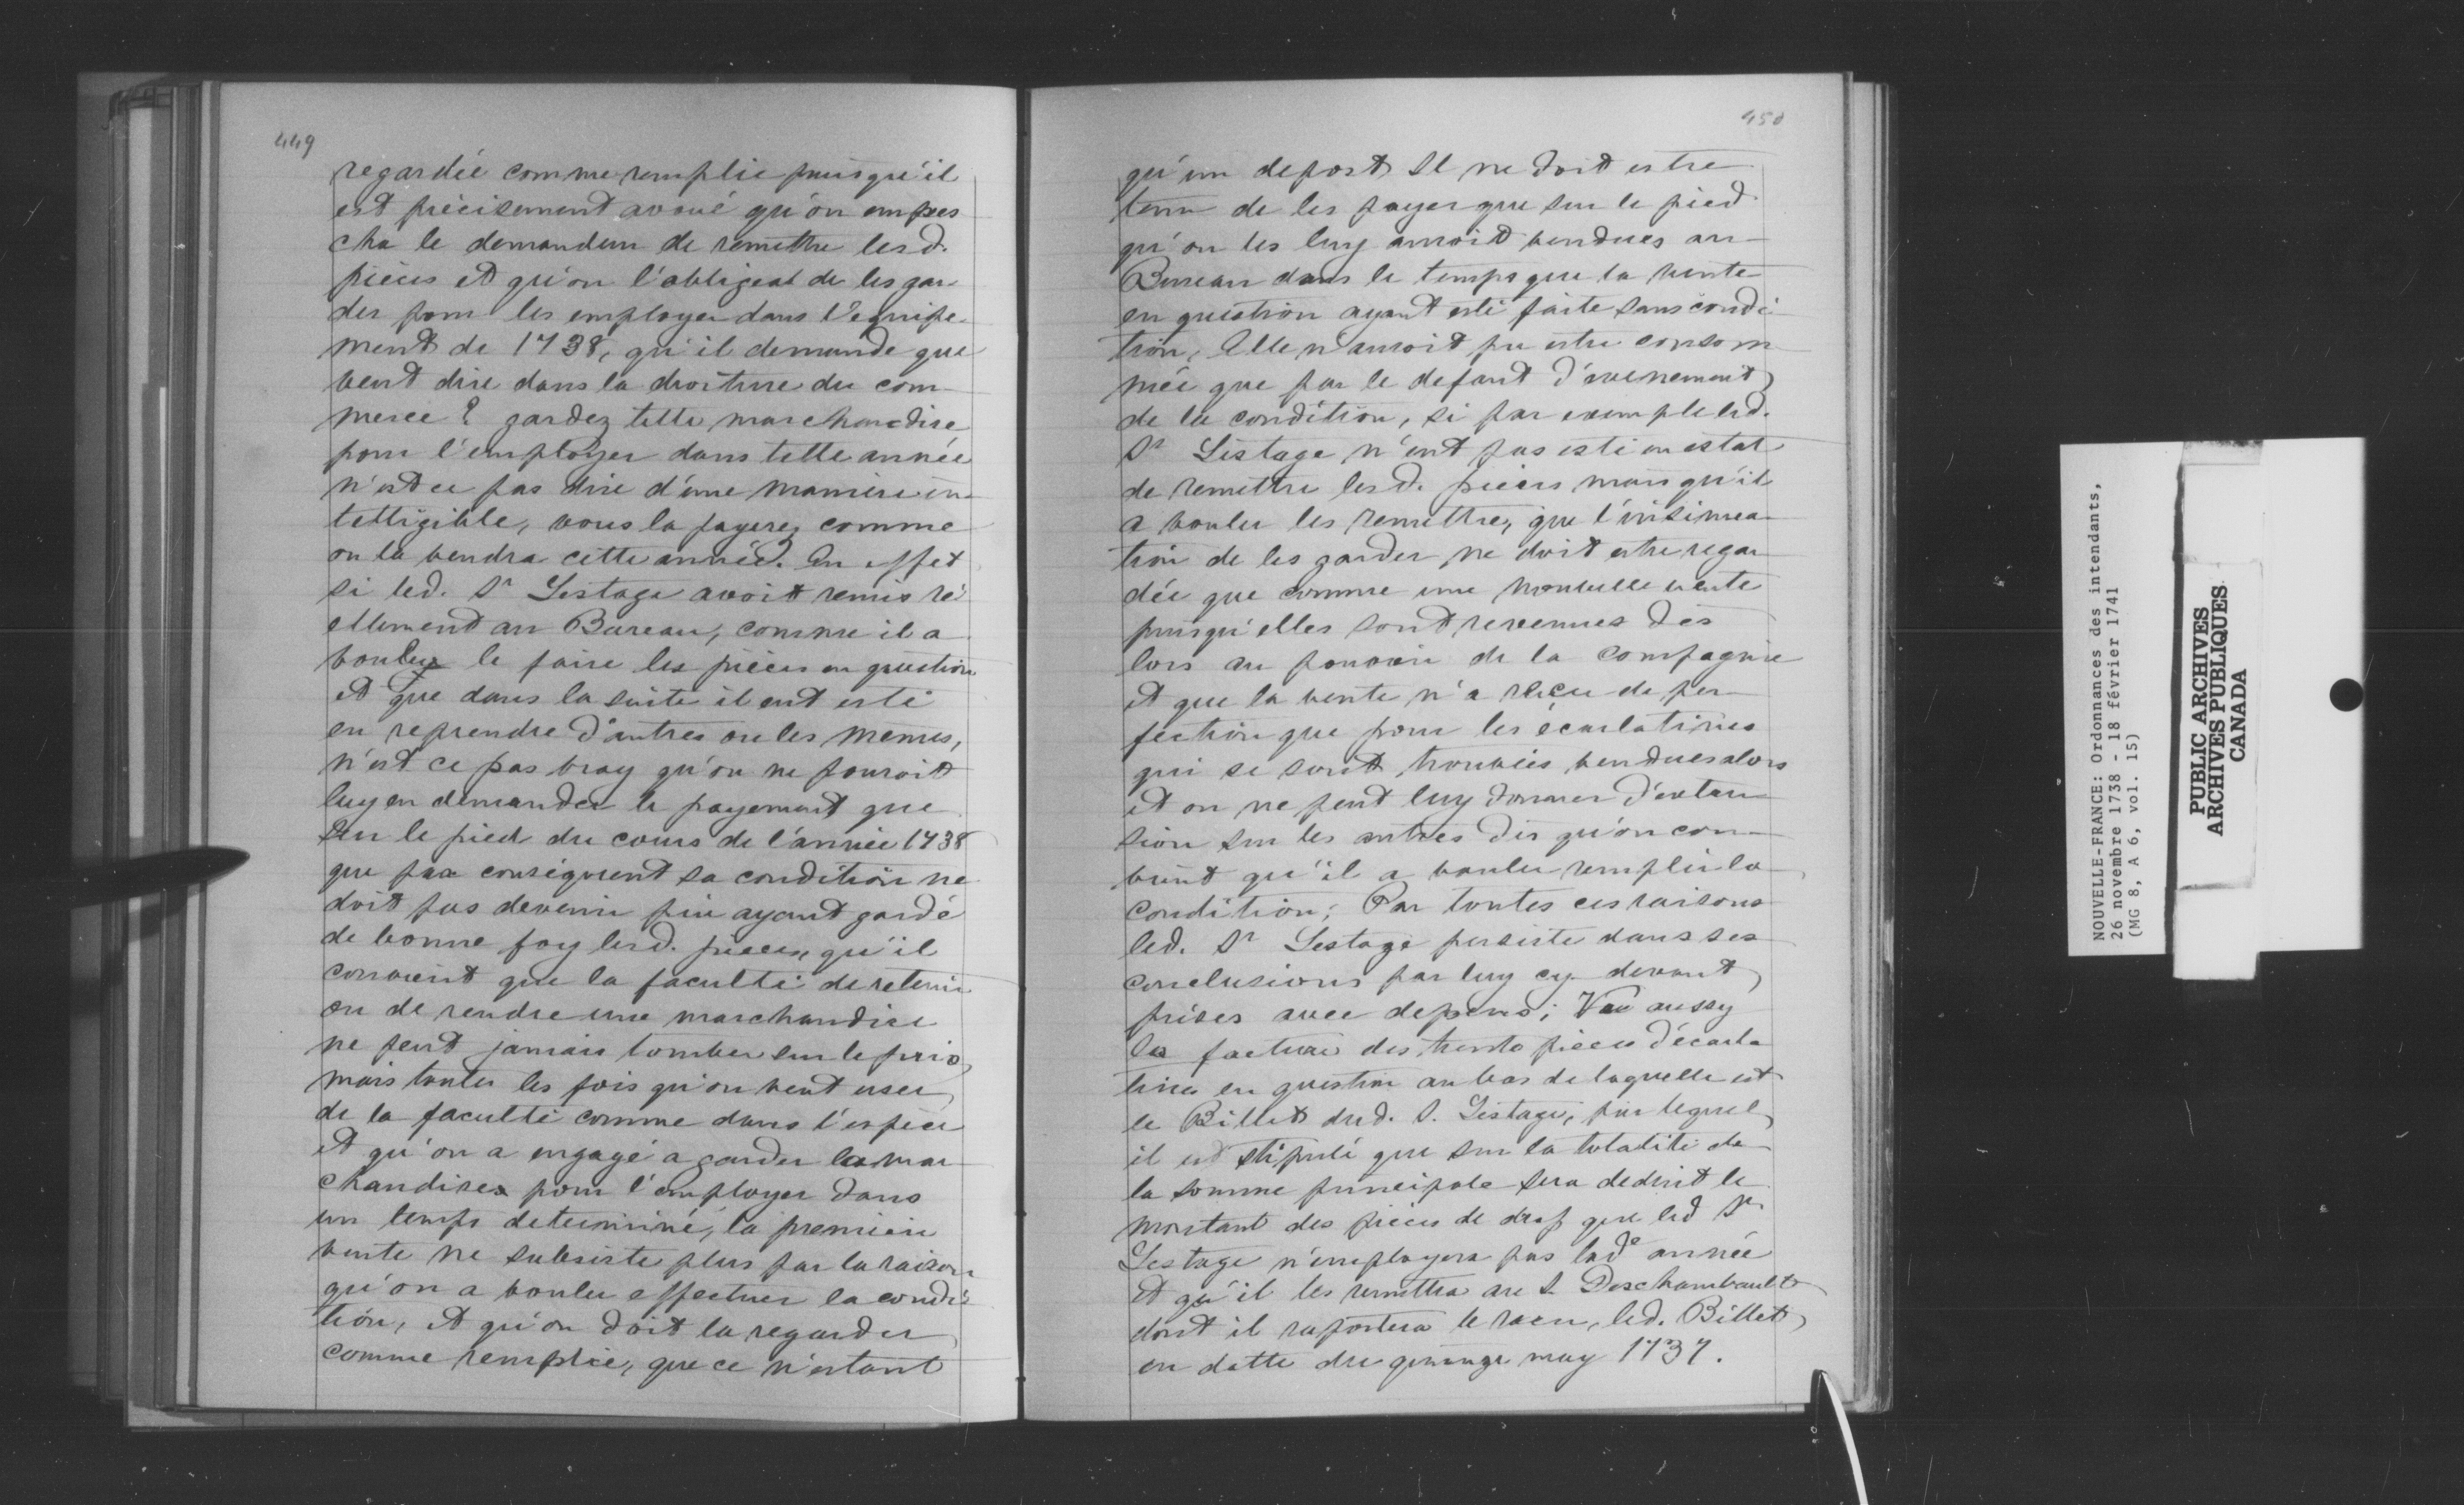 449
regardée comme remplie puisqu'il
est précisement avoué qu'on empes
cha le demandeur de remettre lesd.
pièces et qu'on l'obligeat de les gar
der pour les employer dans l'equipe
ment de 1738, qu'il demande que
veut dire dans la droiture du com
merce? gardez telle marchandise
pour l'employer dans telle année
n'est ce pas dire d'une manière in
telligible, vous la payerez comme
on la vendra cette année. En effet
si led. Sr Lestage avoit remis ré
ellement au Bureau, comme il a
voulu le faire les pièces en question
et que dans la suite il eut esté
en reprendre d'autres ou les mêmes,
n'est ce pas vray qu'on ne pouroit
luy en demander le payement que
sur le pied du cours de l'année 1738
que par conséquent sa condition ne
doit pas devenir pire ayant gardé
de bonne foy lesd. pièces, qu'il
convient que la faculté de retenir
ou de rendre une marchandise
ne peut jamais tomber sur le prix,
mais toutes les fois qu'on veut user
de la faculté comme dans l'espèce
et qu'on a engagé a garder la mar
chandise pour l'employer dans
un temps determiné, la première
vente ne subsiste plus par la raison
qu'on a voulu effectuer la condi
tion, et qu'on doit la regarder
comme remplie, que ce n'estant
450
qu'un depost Il ne doit estre
tenu de les payer que sur le pied
qu'on les luy auroit vendues au
Bureau dans le temps que la vente
en question ayant esté faite sans condi
tion, Elle n'auroit pu estre consom
mée que par le defaut d'evenement
de la condition, si par exemple led.
Sr Lestage n'eut pas esté en estat
de remettre lesd. pièces mais qu'il
a voulu les remettre, que l'insinua
tion de les garder ne doit estre regar
dée que comme une nouvelle vente
puisqu'elles sont revenues dès
lors au pouvoir de la Compagnie
et que la vente n'a reçeu de per
fection que pour les écarlatines
qui se sont trouvées vendues alors
et on ne peut luy donner d'exten
sion sur les autres dès qu'on con
vient qu'il a voulu remplir la
condition; Par toutes ces raisons
led. Sr Lestage persiste dans ses
conclusions par luy cy devant
prises avec depens; Veu aussy
la facture des trente pièces d'écarla
tines en question au bas de laquelle est
le Billet dud. S. Lestage, par lequel
il est stipulé que sur la totalité de
la somme principale sera deduit le
montant des pièces de drap que led Sr
Lestage n'employera pas lade année
et qu'il les remettra au S. Deschambault
dont il raportera le recu, led. Billet
en datte du quinze may 1737.
NOUVELLE-FRANCE: Ordonnances des intendants,
26 novembre 1738 - 18 février 1741
(MG 8, A 6, vol. 15)
PUBLIC ARCHIVES
ARCHIVES PUBLIQUES
CANADA